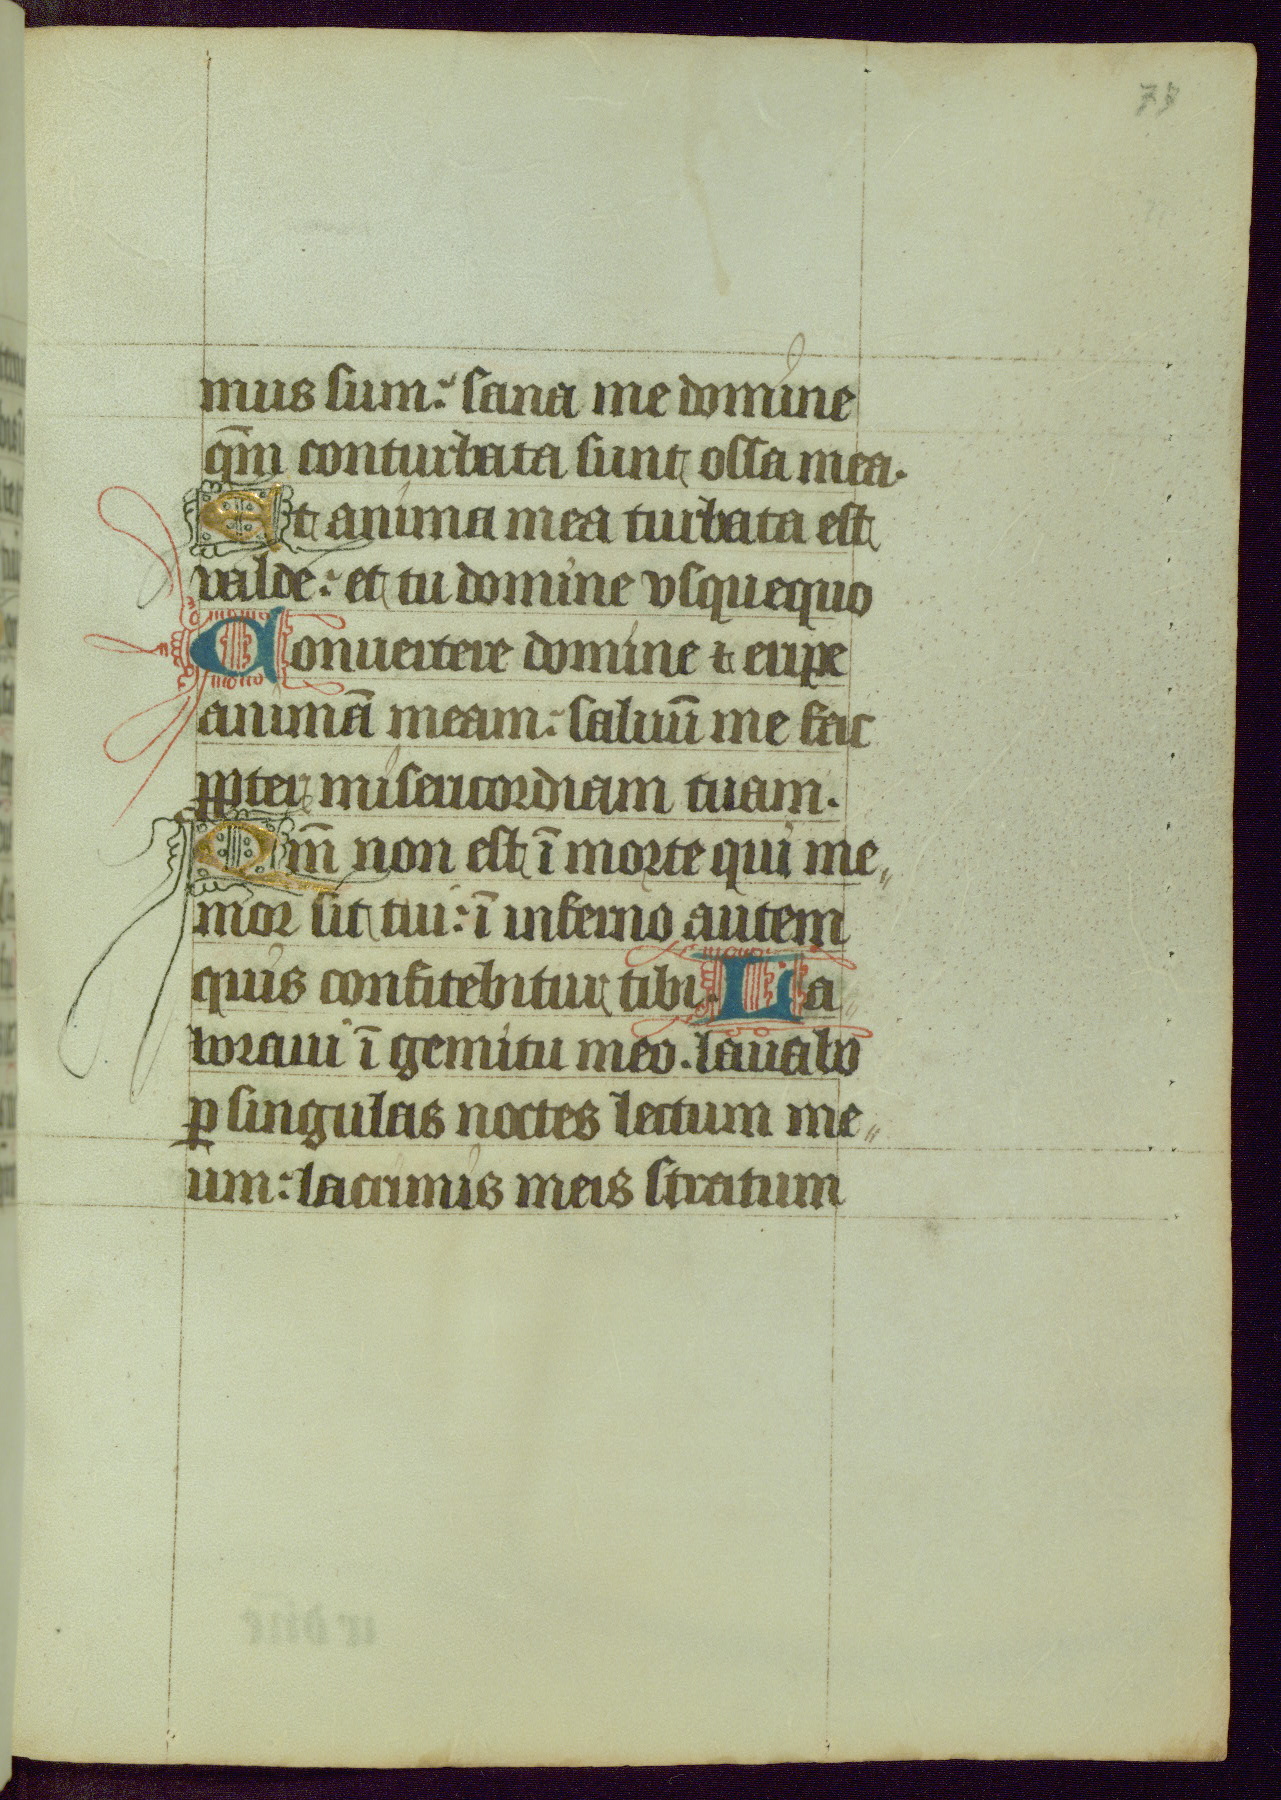 73
mus sum: sana me domine
qm̄ conturbata sunt ossa mea.
Et anima mea turbata est
valde: et tu domine vsquequo
Conuertere domine ⁊ eripe
animā meam: saluū me fac
ꝓpter misericordiam tuam.
Qm̄ non est ī morte qui me„
mor sit tui: ī inferno autem
quis confitebitur tibi. La
boraui ī gemitu meo. lauabo
ꝑ singulas noctes lectum me„
um: lacrimis meis stratum